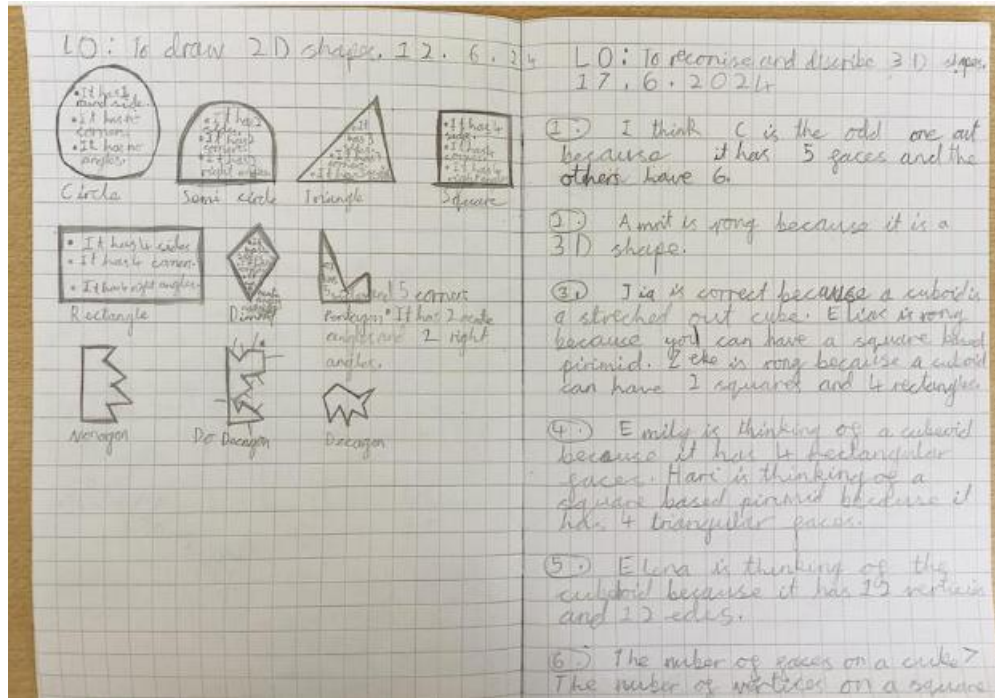 LO: To draw 2D shape. 12. 6. 24
• It has 1
round side.
• It has no
corners.
• It has no
angles.
Circle
• It has 2
sides.
• It has 2
corners.
• It has 2
right angles.
Semi circle
• It
has 3
sides.
• It has 3
corners.
• It has 3
Triangle
• It has 4
sides.
• It has 4
corners.
• It has 4
right angles.
Square
• It has 4 sides
• It has 4 corners.
• It has 4 right angles.
Rectangle
5 corners
Pentagon • It has 2 acute
angles and 2 right
angles.
Nonagon
Do Decagon
Decagon
LO: To reconise and discribe 3D shapes.
17. 6. 2024
1.) I think C is the odd one out
because it has 5 faces and the
others have 6.
2.) Amrit is rong because it is a
3D shape.
3.) Jia is correct because a cuboid is
a streched out cube. Elias is rong
because you can have a square based
pirimid. Zeke is rong because a cuboid
can have 2 squares and 4 rectangles.
4.) Emily is thinking of a cuboid
because it has 4 rectangular
faces. Hari is thinking of a
square based pirimid because it
has 4 triangular faces.
5.) Elena is thinking of the
because it has 12
and 12 edes.
6.) The nuber of faces on a cube >
The nuber of vertices on a square